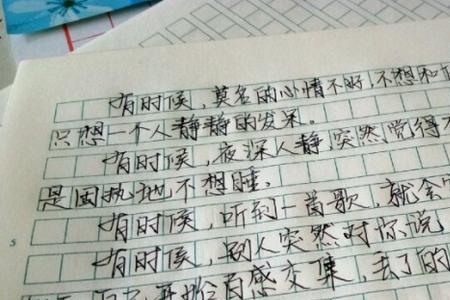 有时候，莫名的心情不好，不想和
只想一个人静静的发呆。
有时候，夜深人静，突然觉得
是固执地不想睡，
有时候，听到一首歌，就会
有时候，别人突然对你说
百感交集，丢了的
5